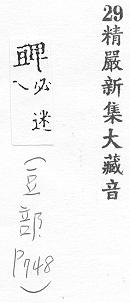 29精嚴新集大藏音
必迷
(豆部
P748)